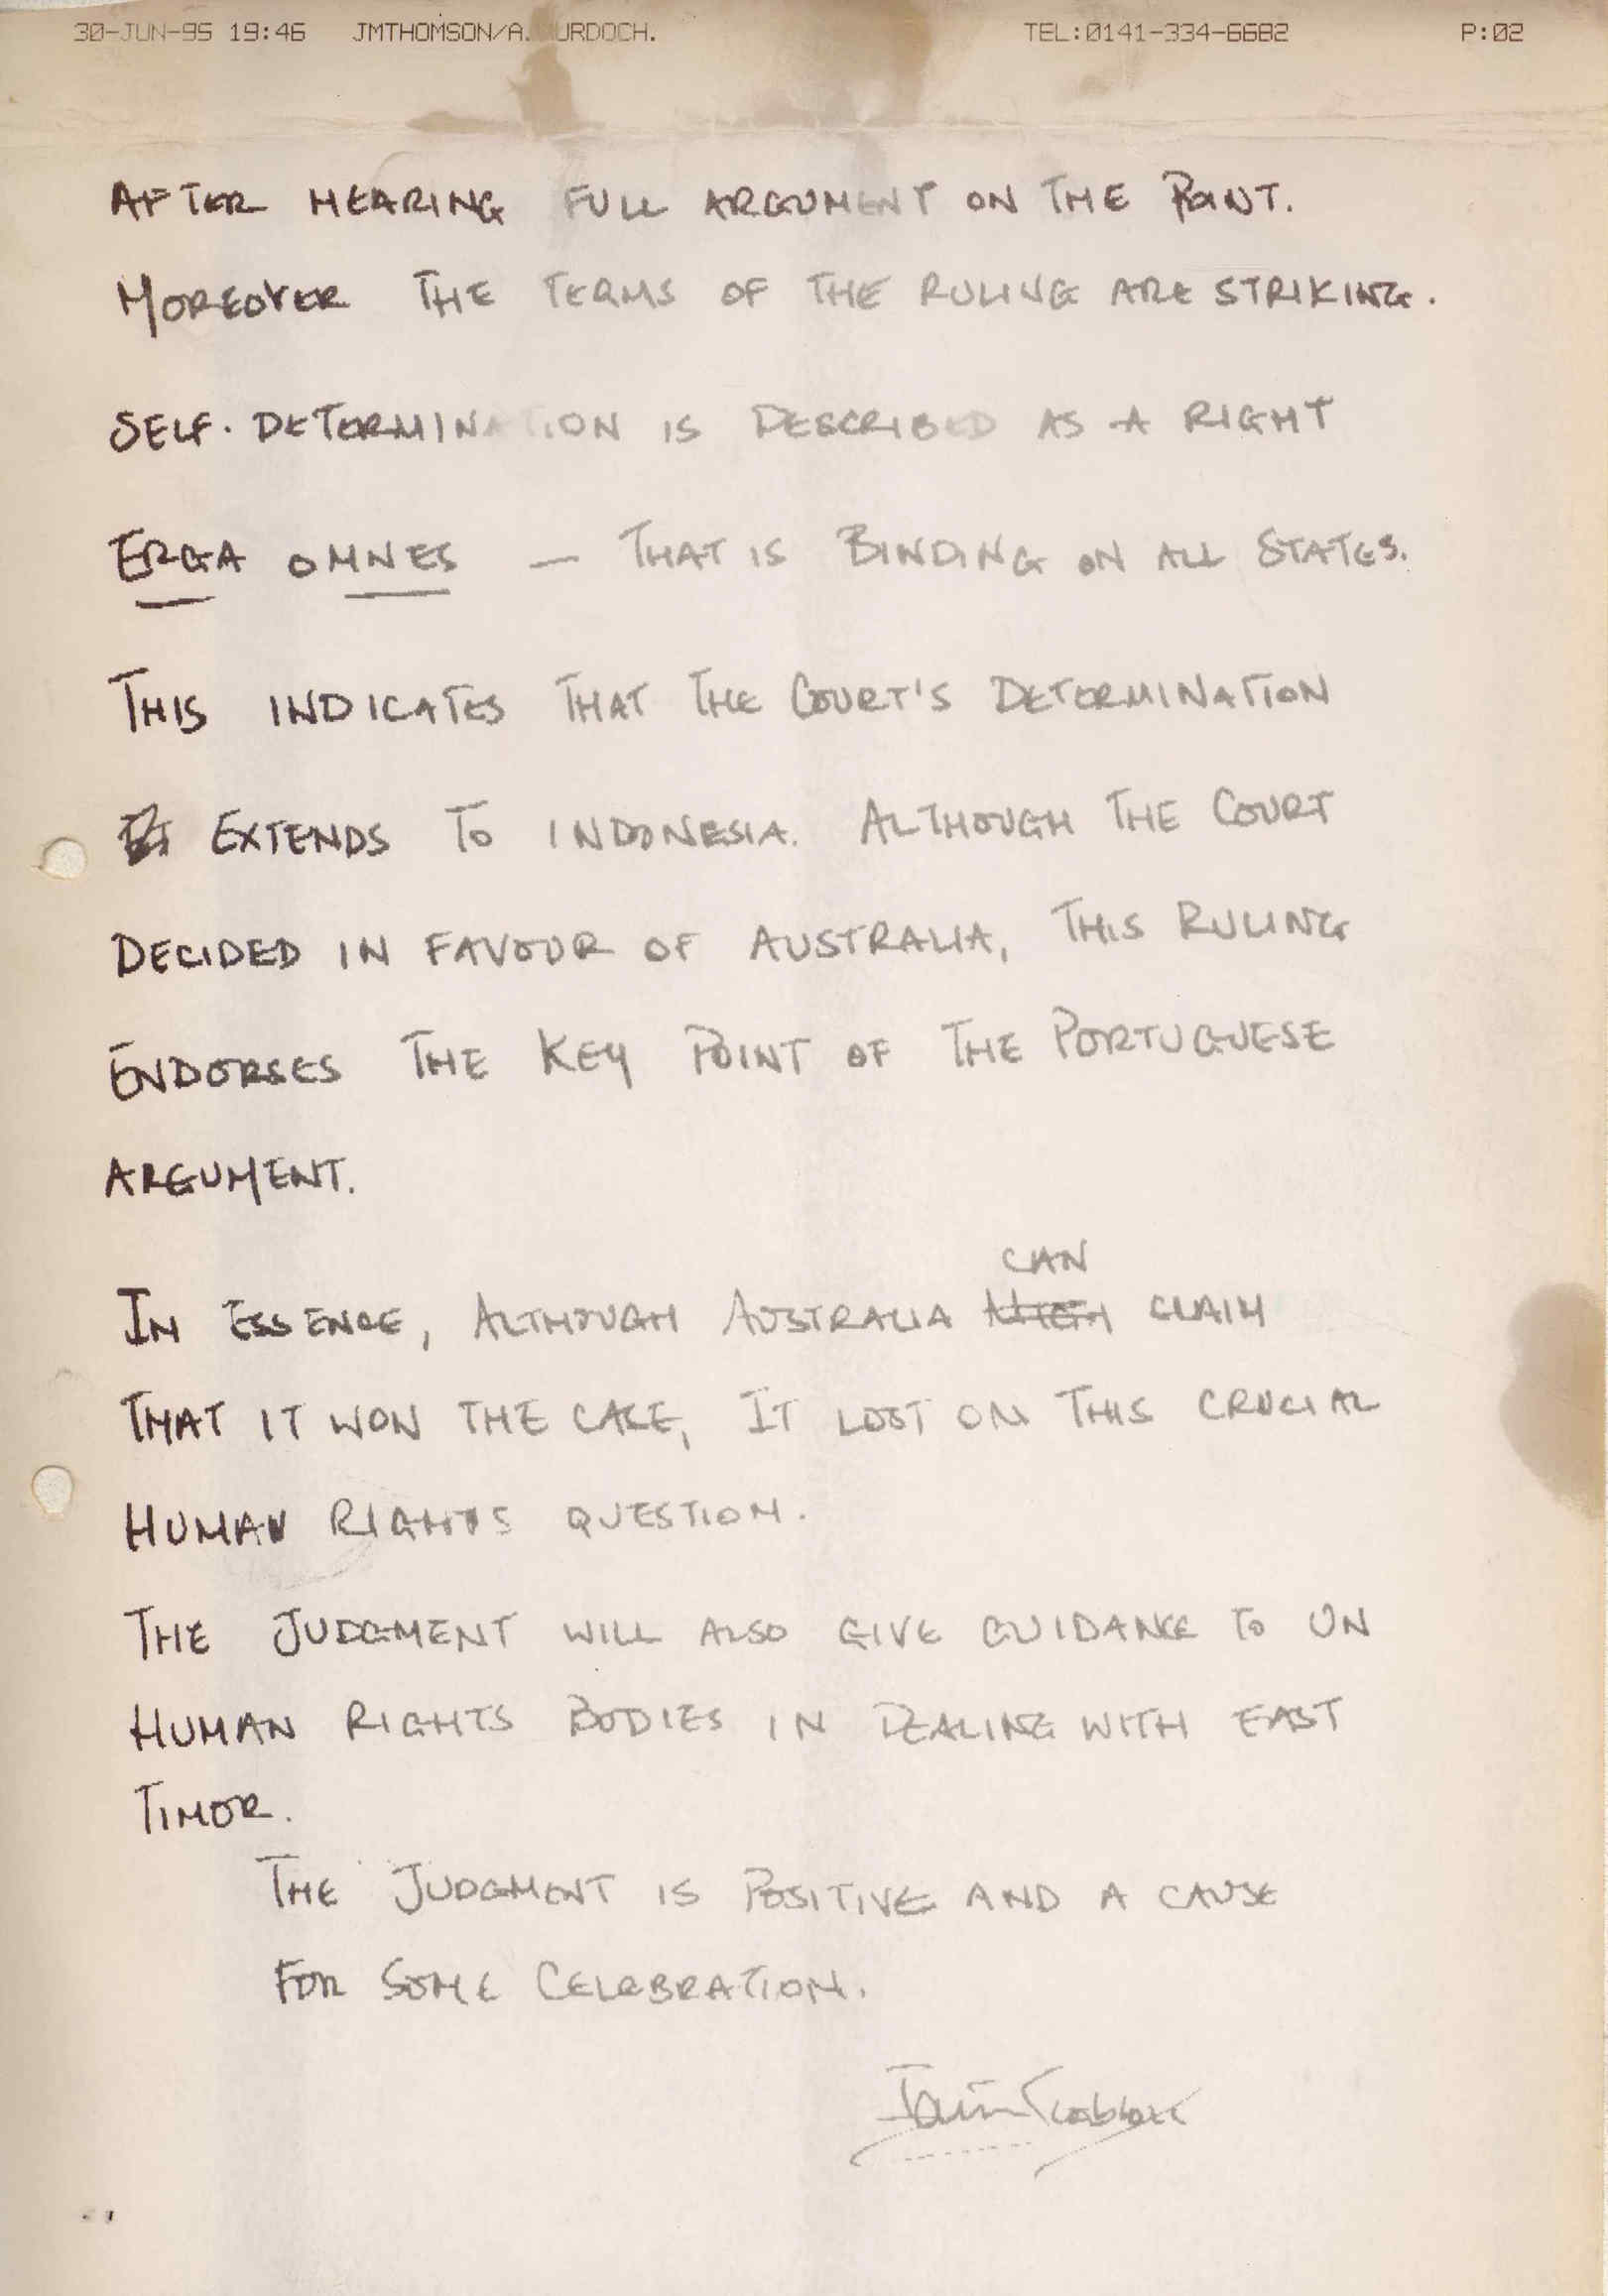 30-JUN-95 19:46 JMTHOMSON/A. URDOCH. TEL:0141-334-6682 P:02
AFTER HEARING FULL ARGUMENT ON THE POINT.
MOREOVER THE TERMS OF THE RULING ARE STRIKING.
SELF-DETERMINATION IS DESCRIBED AS A RIGHT
ERGA OMNES — THAT IS BINDING ON ALL STATES.
THIS INDICATES THAT THE COURT'S DETERMINATION
EXTENDS TO INDONESIA. ALTHOUGH THE COURT
DECIDED IN FAVOUR OF AUSTRALIA, THIS RULING
ENDORSES THE KEY POINT OF THE PORTUGUESE
ARGUMENT.
CAN
IN ESSENCE, ALTHOUGH AUSTRALIA CLAIM
THAT IT WON THE CASE, IT LOST ON THIS CRUCIAL
HUMAN RIGHTS QUESTION.
THE JUDGMENT WILL ALSO GIVE GUIDANCE TO UN
HUMAN RIGHTS BODIES IN DEALING WITH EAST
TIMOR.
THE JUDGMENT IS POSITIVE AND A CAUSE
FOR SOME CELEBRATION.
Iain Scobbie